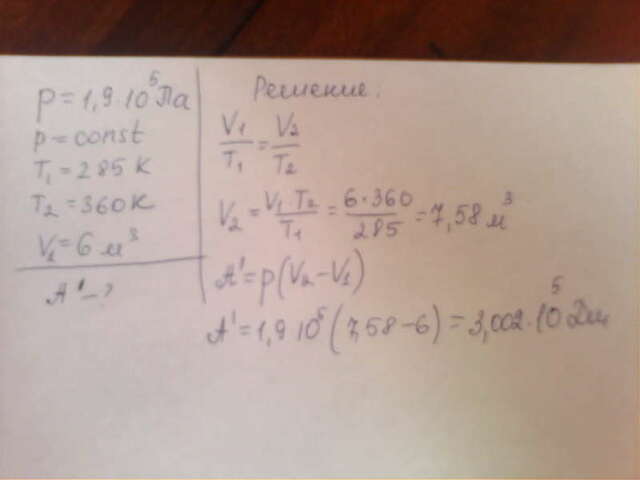 p = 1,9·10⁵ Па
p = const
T₁ = 285 К
T₂ = 360 К
V₁ = 6 м³
A' - ?
Решение:
V₁/T₁ = V₂/T₂
V₂ = V₁ T₂/T₁ = 6·360/285 = 7,58 м³
A' = p(V₂ - V₁)
A' = 1,9 10⁵ (7,58 - 6) = 3,002·10⁵ Дж